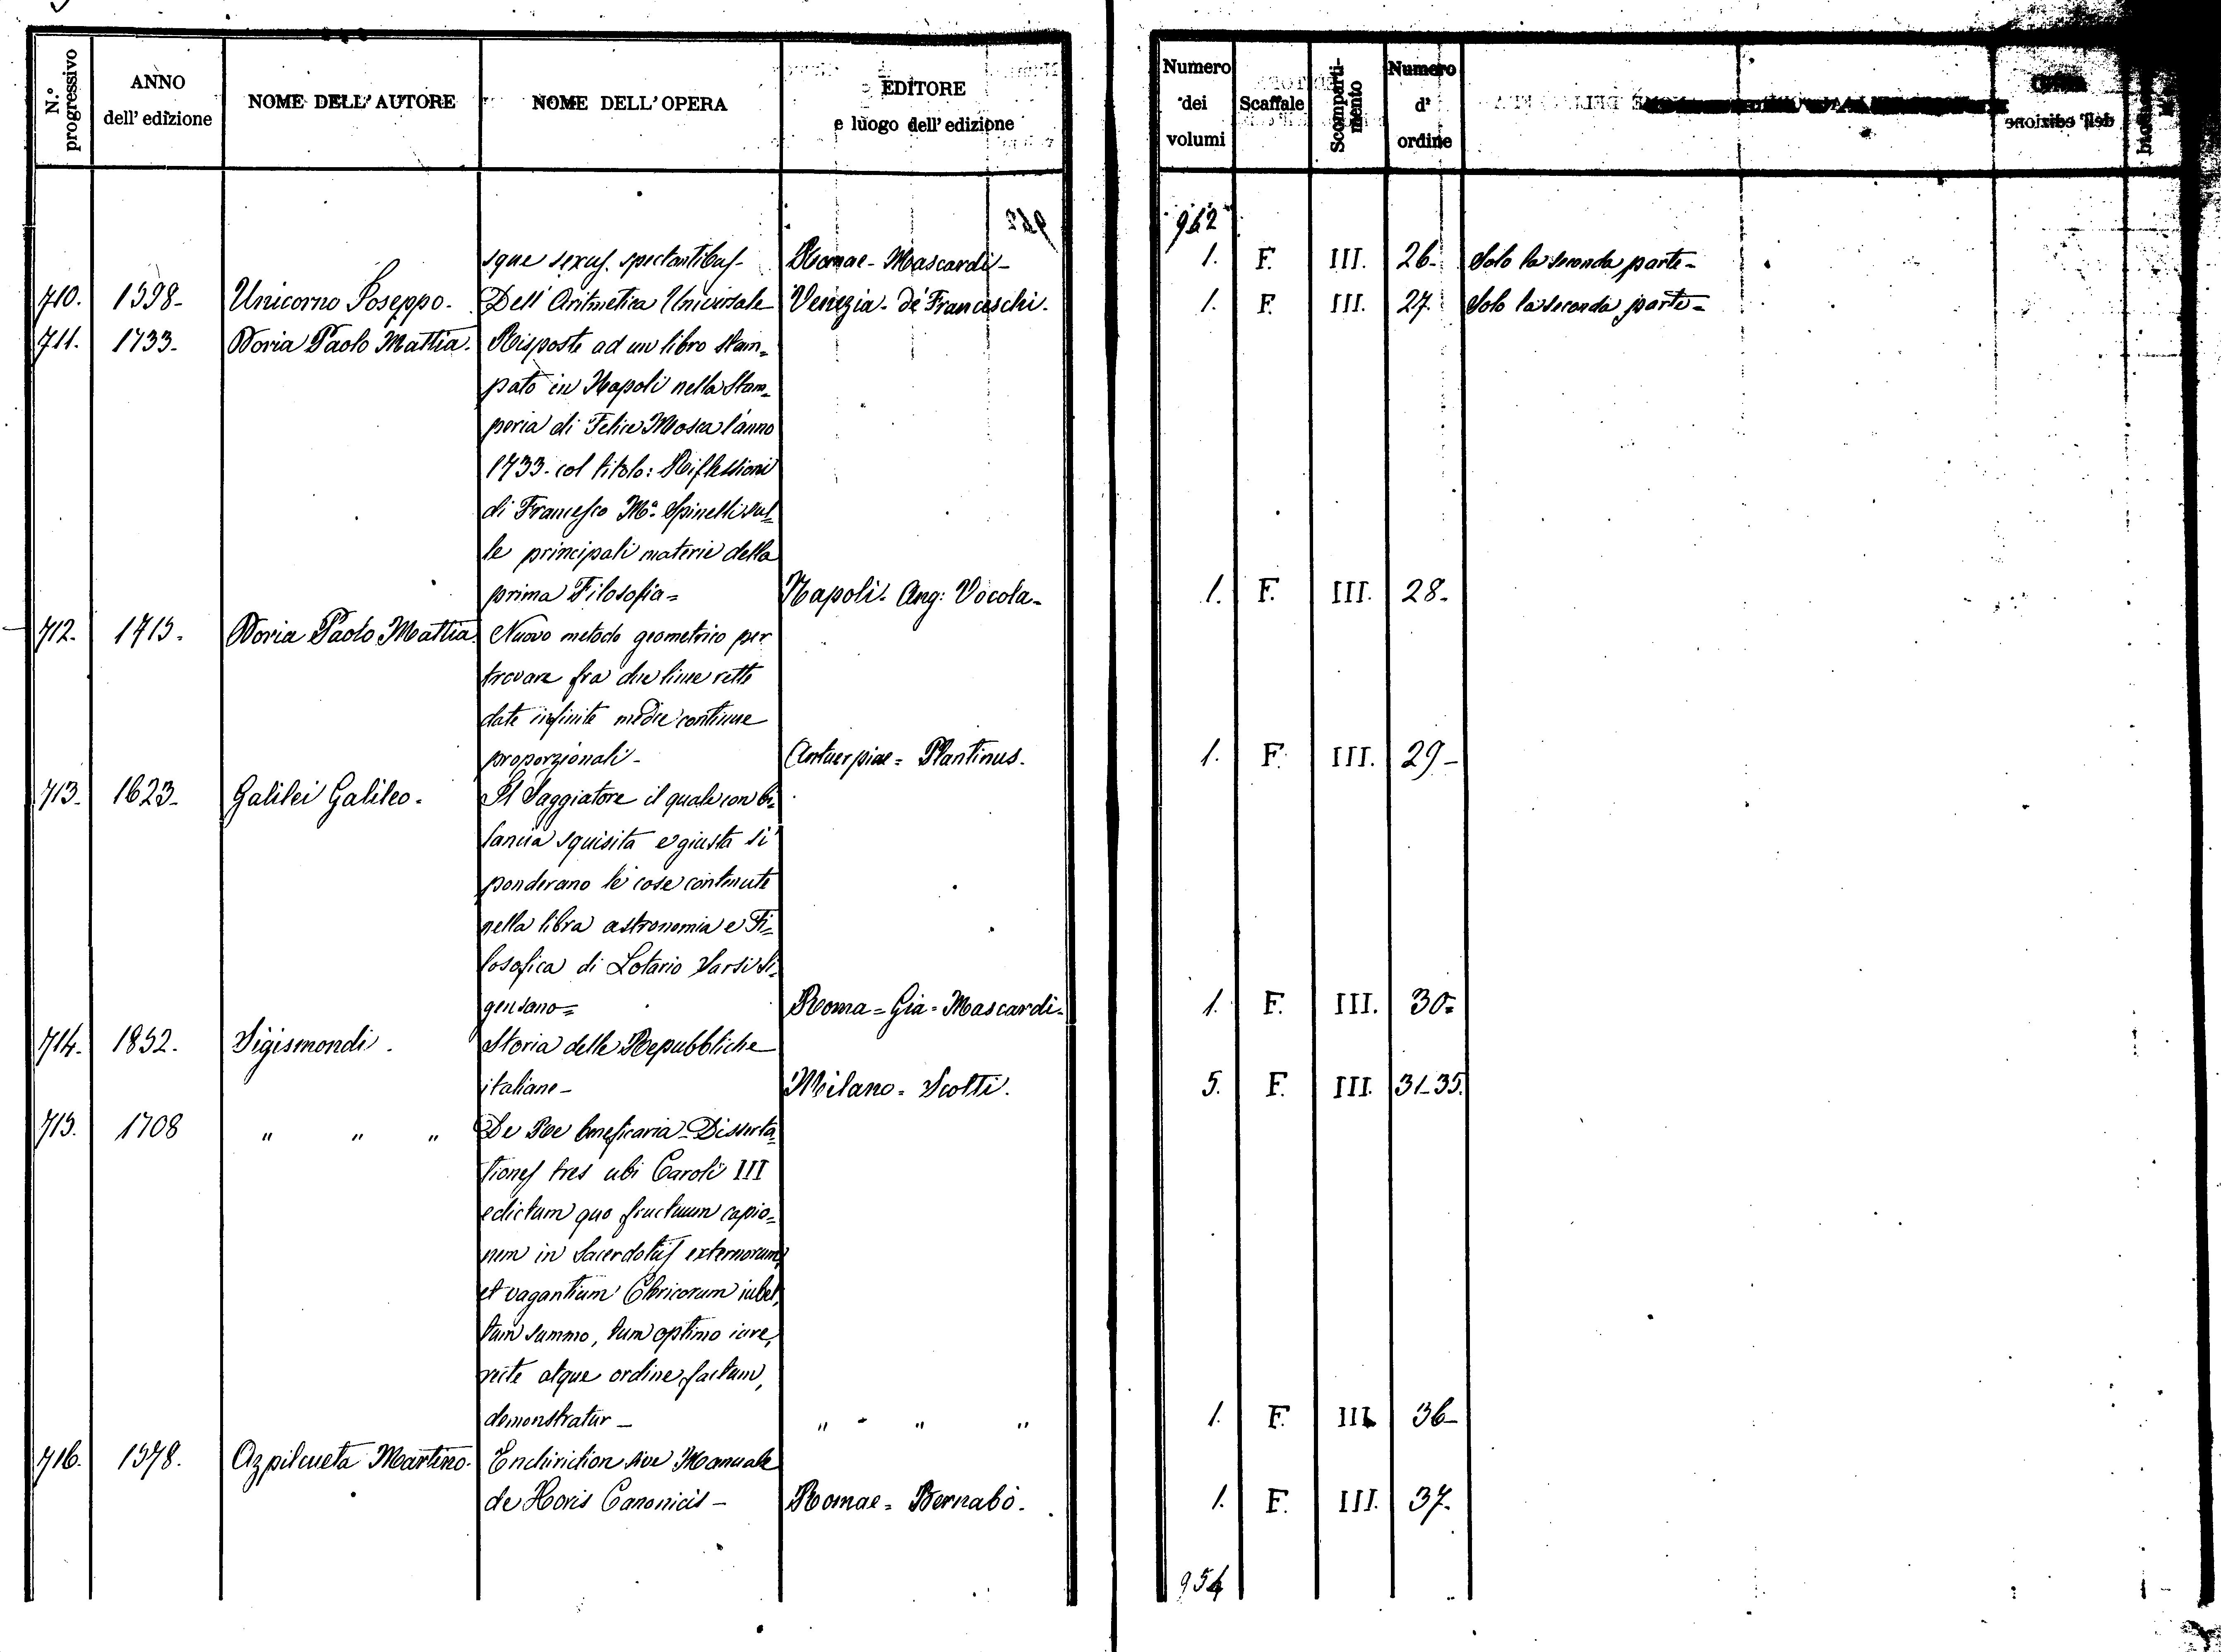 N.º progressivo | ANNO dell' edizione | NOME DELL' AUTORE | NOME DELL' OPERA | EDITORE e luogo dell' edizione | Numero dei volumi | Scaffale | Scomparti-mento | Numero d' ordine
962
sque sexus spectantibus- | Romae- Mascardi- | 1. | F. | III. | 26- | Solo la seconda parte-
710. | 1598- | Unicorno Joseppo. | Dell' Aritmetica Universale | Venezia- de' Franceschi. | 1. | F. | III. | 27. | Solo la seconda parte-
711. | 1733- | Doria Paolo Mattia. | Risposte ad un libro stam=
pato in Napoli nella Stam=
peria di Felice Mosca l'anno
1733- col titolo: Riflessioni
di Francesco Mª Spinelli sul=
le principali materie della
prima Filosofia= | Napoli- Ang: Vocola- | 1. | F. | III. | 28-
712. | 1715. | Doria Paolo Mattia. | Nuovo metodo geometrico per
trovare fra due linee rette
date infinite medie continue
proporzionali- | Antuerpiae= Plantinus. | 1. | F. | III. | 29-
713. | 1623- | Galilei Galileo. | Il Saggiatore il quale con bi=
lancia squisita e giusta si
ponderano le cose contenute
nella libra astronomia e Fi=
losofica di Lotario Sarsi Si=
gensano= | Roma= Gia= Mascardi- | 1. | F. | III. | 30=
714. | 1852. | Sigismondi. | Storia delle Repubbliche
italiane- | Milano= Scotti. | 5. | F. | III. | 31-35.
715. | 1708 | " " " | De Re beneficaria- Disserta=
tiones tres ubi Caroli III
edictum quo fructuum capio=
nem in Sacerdotiis externorum,
et vagantium Clericorum iubet,
tum summo, tum optimo iure,
recte atque ordine factum,
demonstratur- | " - " " | 1. | F. | III. | 36-
716. | 1578. | Azpilcueta Martino. | Enchiridion sive Manuale
de Horis Canonicis- | Romae= Bernabò. | 1. | F. | III. | 37.
954